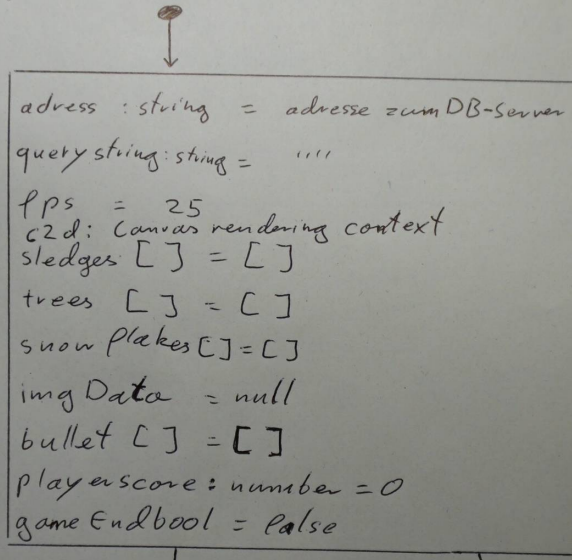 adress : string = adresse zum DB-Server
query string : string = ""
fps = 25
c2d: Canvas rendering context
sledges [ ] = [ ]
trees [ ] = [ ]
snow flakes [ ] = [ ]
img Data = null
bullet [ ] = [ ]
playerscore : number = 0
game Endbool = false